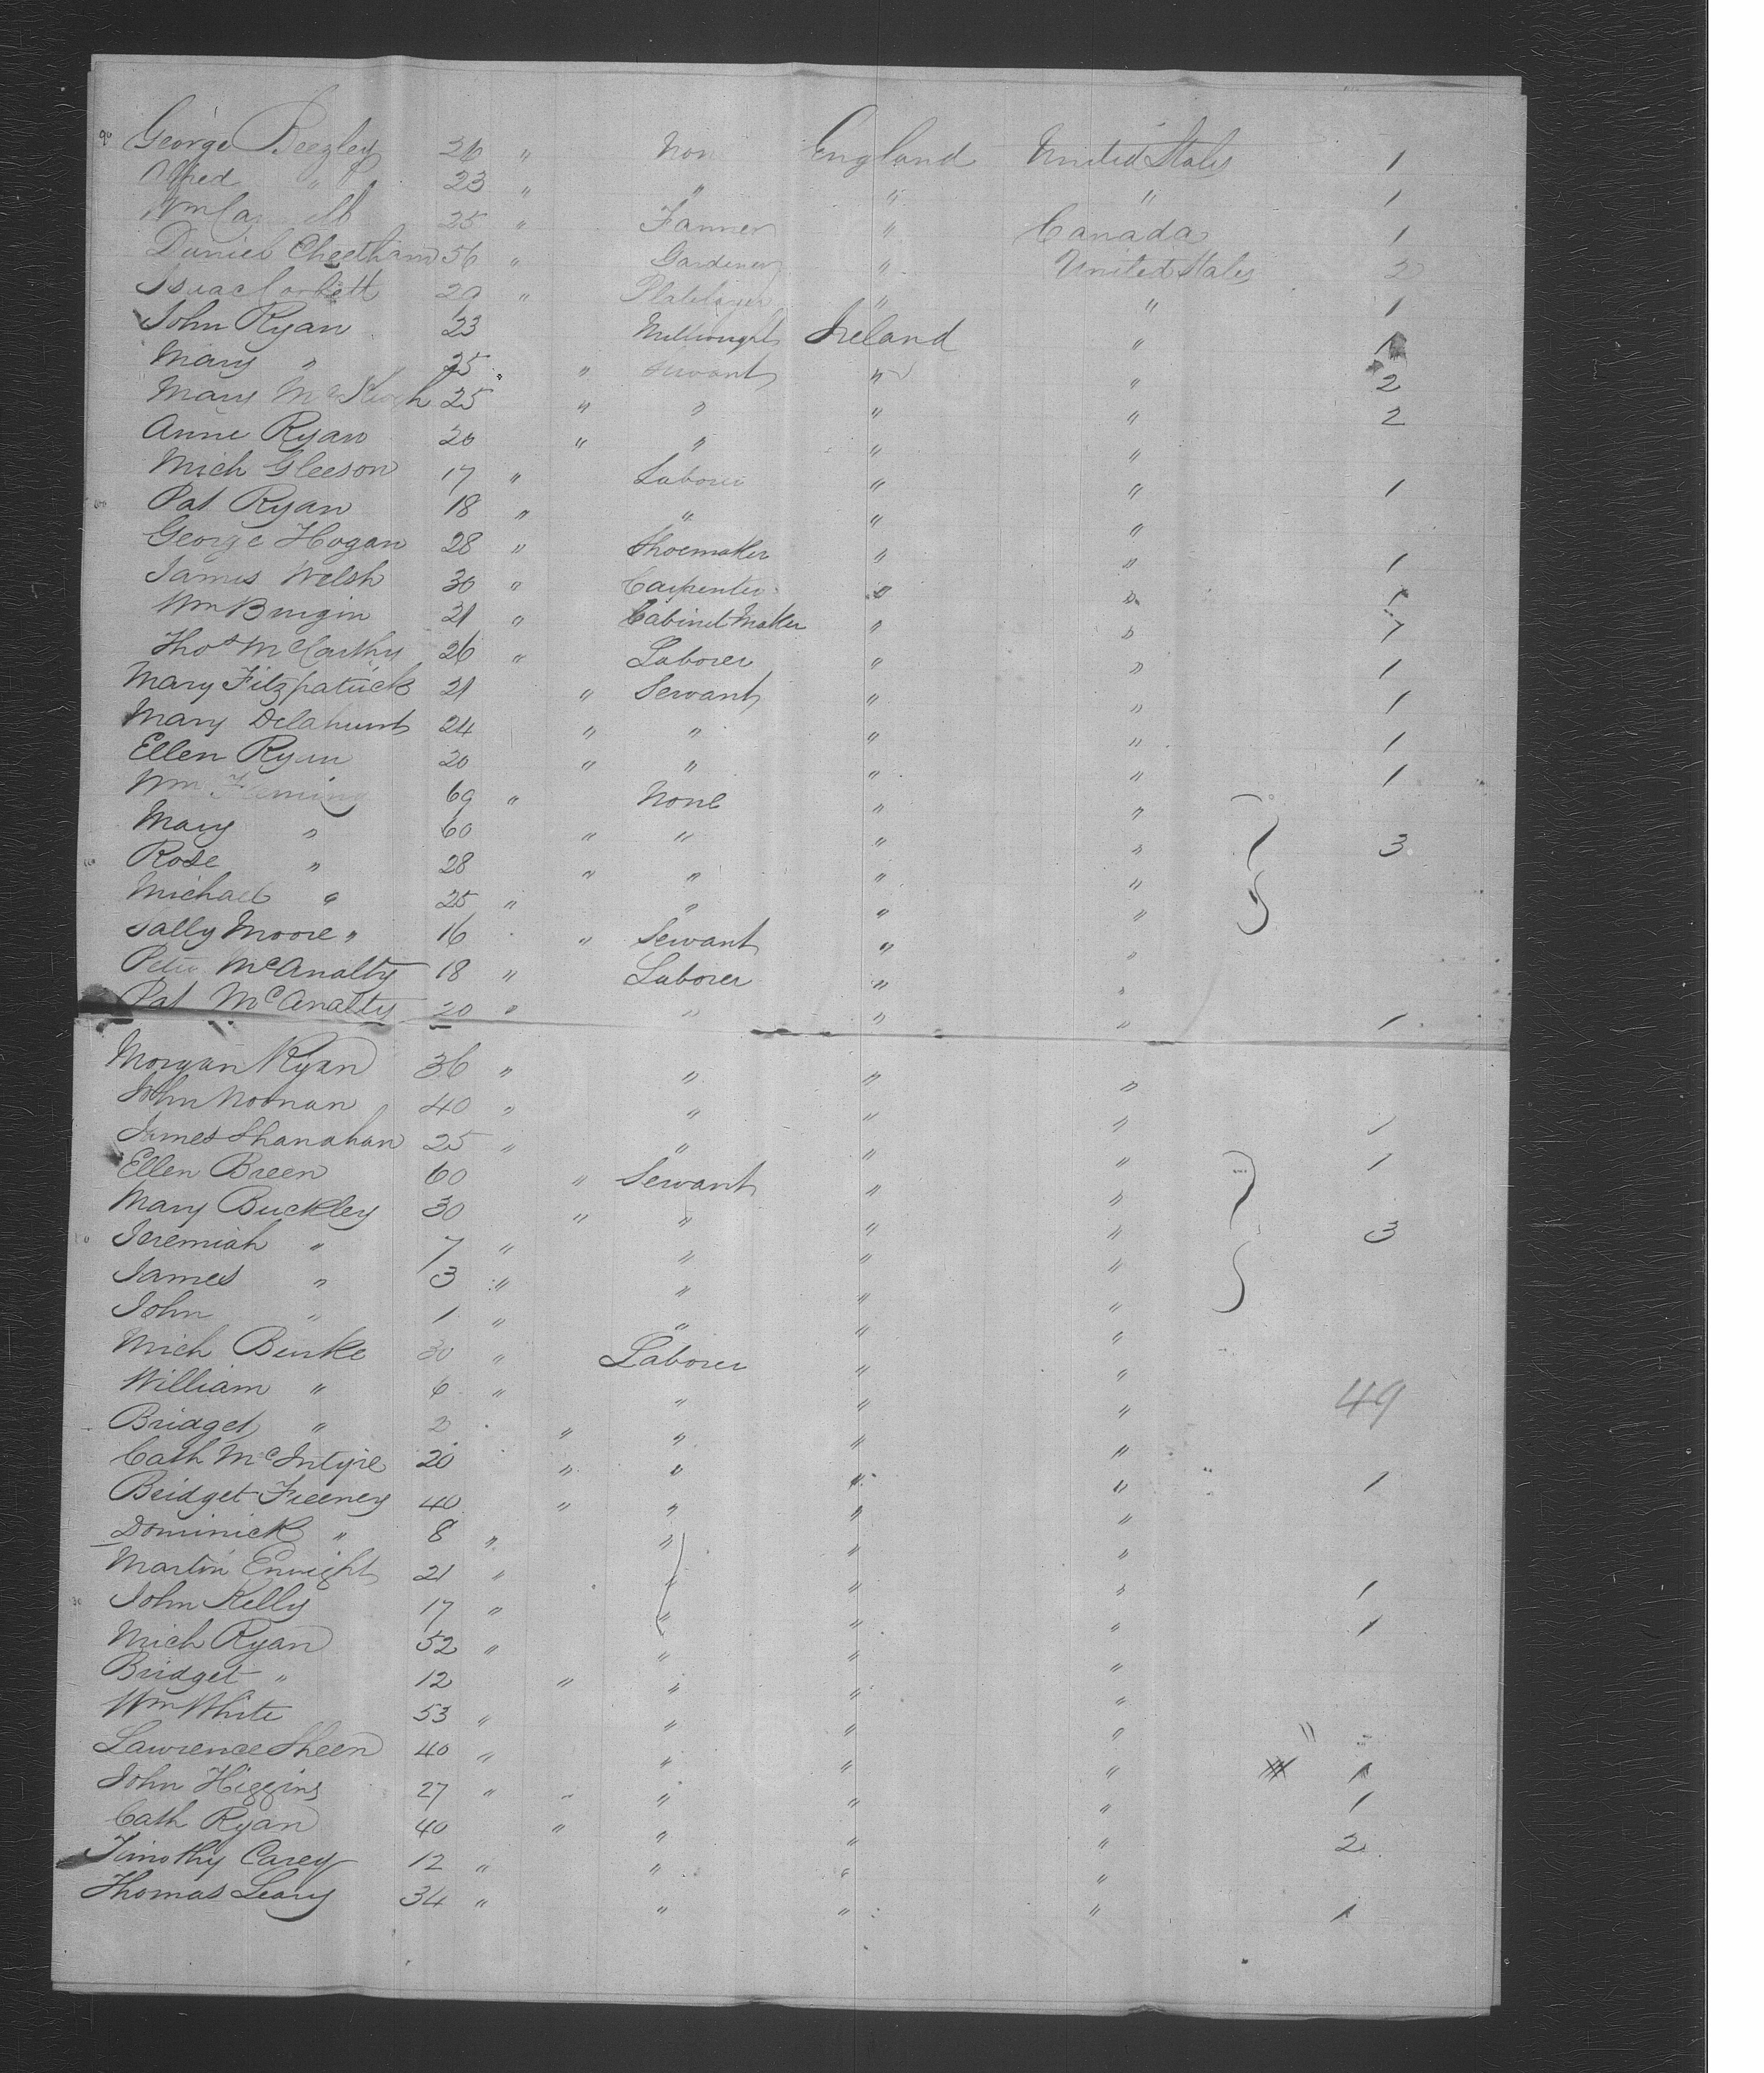 90 George Beezley 26 " Non England United States 1
Alfred " 23 " " " " 1
Wm 25 " Farmer " Canada 1
Daniel Cheetham 56 " Gardener " United States 2
Isaac Corbett 20 " Platelayer " " 1
John Ryan 23 Millwright Ireland " 1
Mary " 25 " Servant " " 2
Mary 25 " " " " 2
Anne Ryan 20 " " " "
Mich Gleeson 17 " Laborer " " 1
Pat Ryan 18 " " " "
George Hogan 28 " Shoemaker " " 1
James Welsh 30 " Carpenter " " 1
Wm Burgin 21 " Cabinet Maker " " 1
Thos McCarthy 26 " Laborer " " 1
Mary Fitzpatrick 21 " Servant " " 1
Mary Delahunt 24 " " " " 1
Ellen Ryan 20 " " " " 1
Wm Fleming 69 " None " "
Mary " 60 " " " " 3
Rose " 28 " " " "
Michael " 25 " " " "
Sally Moore " 16 " Servant " "
Peter McAnalty 18 " Laborer " "
Pat McAnalty 20 " " " " 1
Morgan Ryan 36 " " " "
John Noonan 40 " " " " 1
James Shanahan 25 " " " " 1
Ellen Breen 60 " Servant " "
Mary Buckley 30 " " " " 3
Jeremiah " 7 " " " "
James " 3 " " " "
John " 1 " " " "
Mich Burke 30 " Laborer " "
William " 6 " " " " 49
Bridget " 2 " " " "
Cath McIntyre 20 " " " " 1
Bridget Feeney 40 " " " "
Dominick " 8 " " " "
Martin Enright 21 " " " " 1
John Kelly 17 " " " " 1
Mich Ryan 52 " " " "
Bridget " 12 " " " "
Wm White 53 " " " "
Lawrence Sheen 40 " " " " 1
John Higgins 27 " " " " 1
Cath Ryan 40 " " " " 2
Timothy Carey 12 " " " "
Thomas Leary 34 " " " " 1